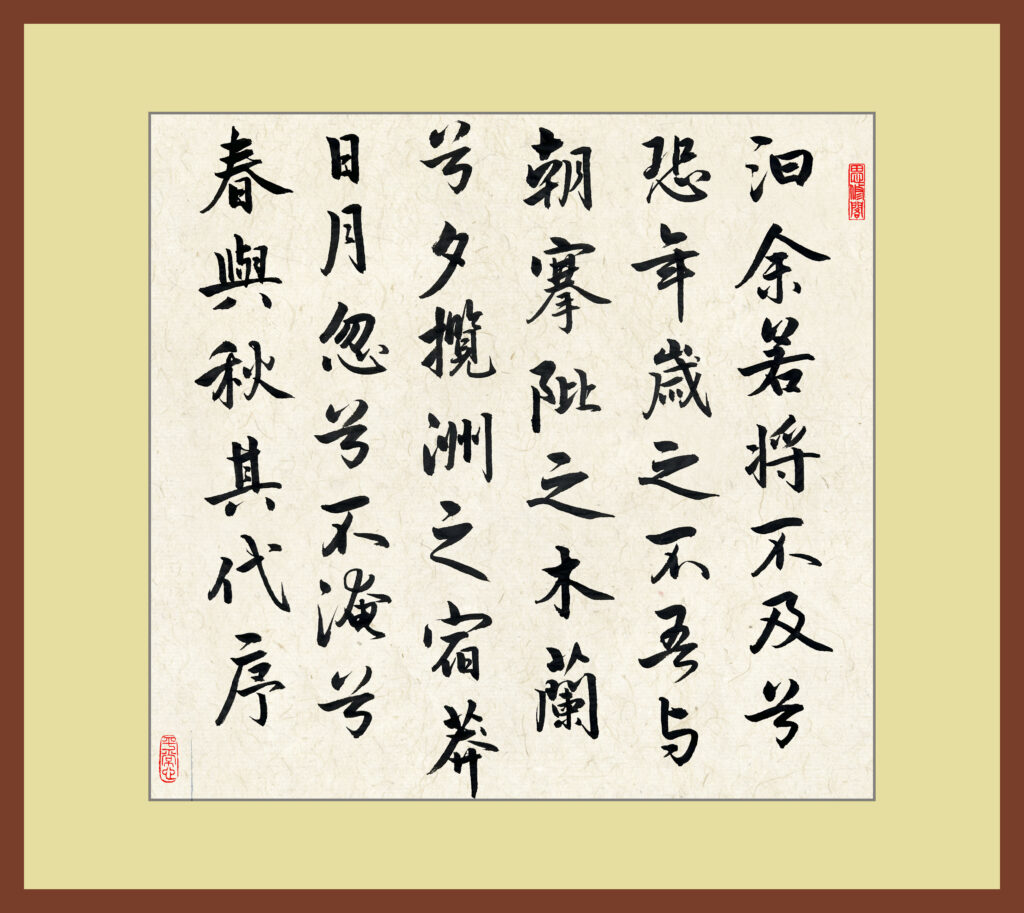 思修閣
汩余若将不及兮
恐年歲之不吾与
朝搴阰之木蘭
兮夕攬洲之宿莽
日月忽兮不淹兮
春與秋其代序
平常心